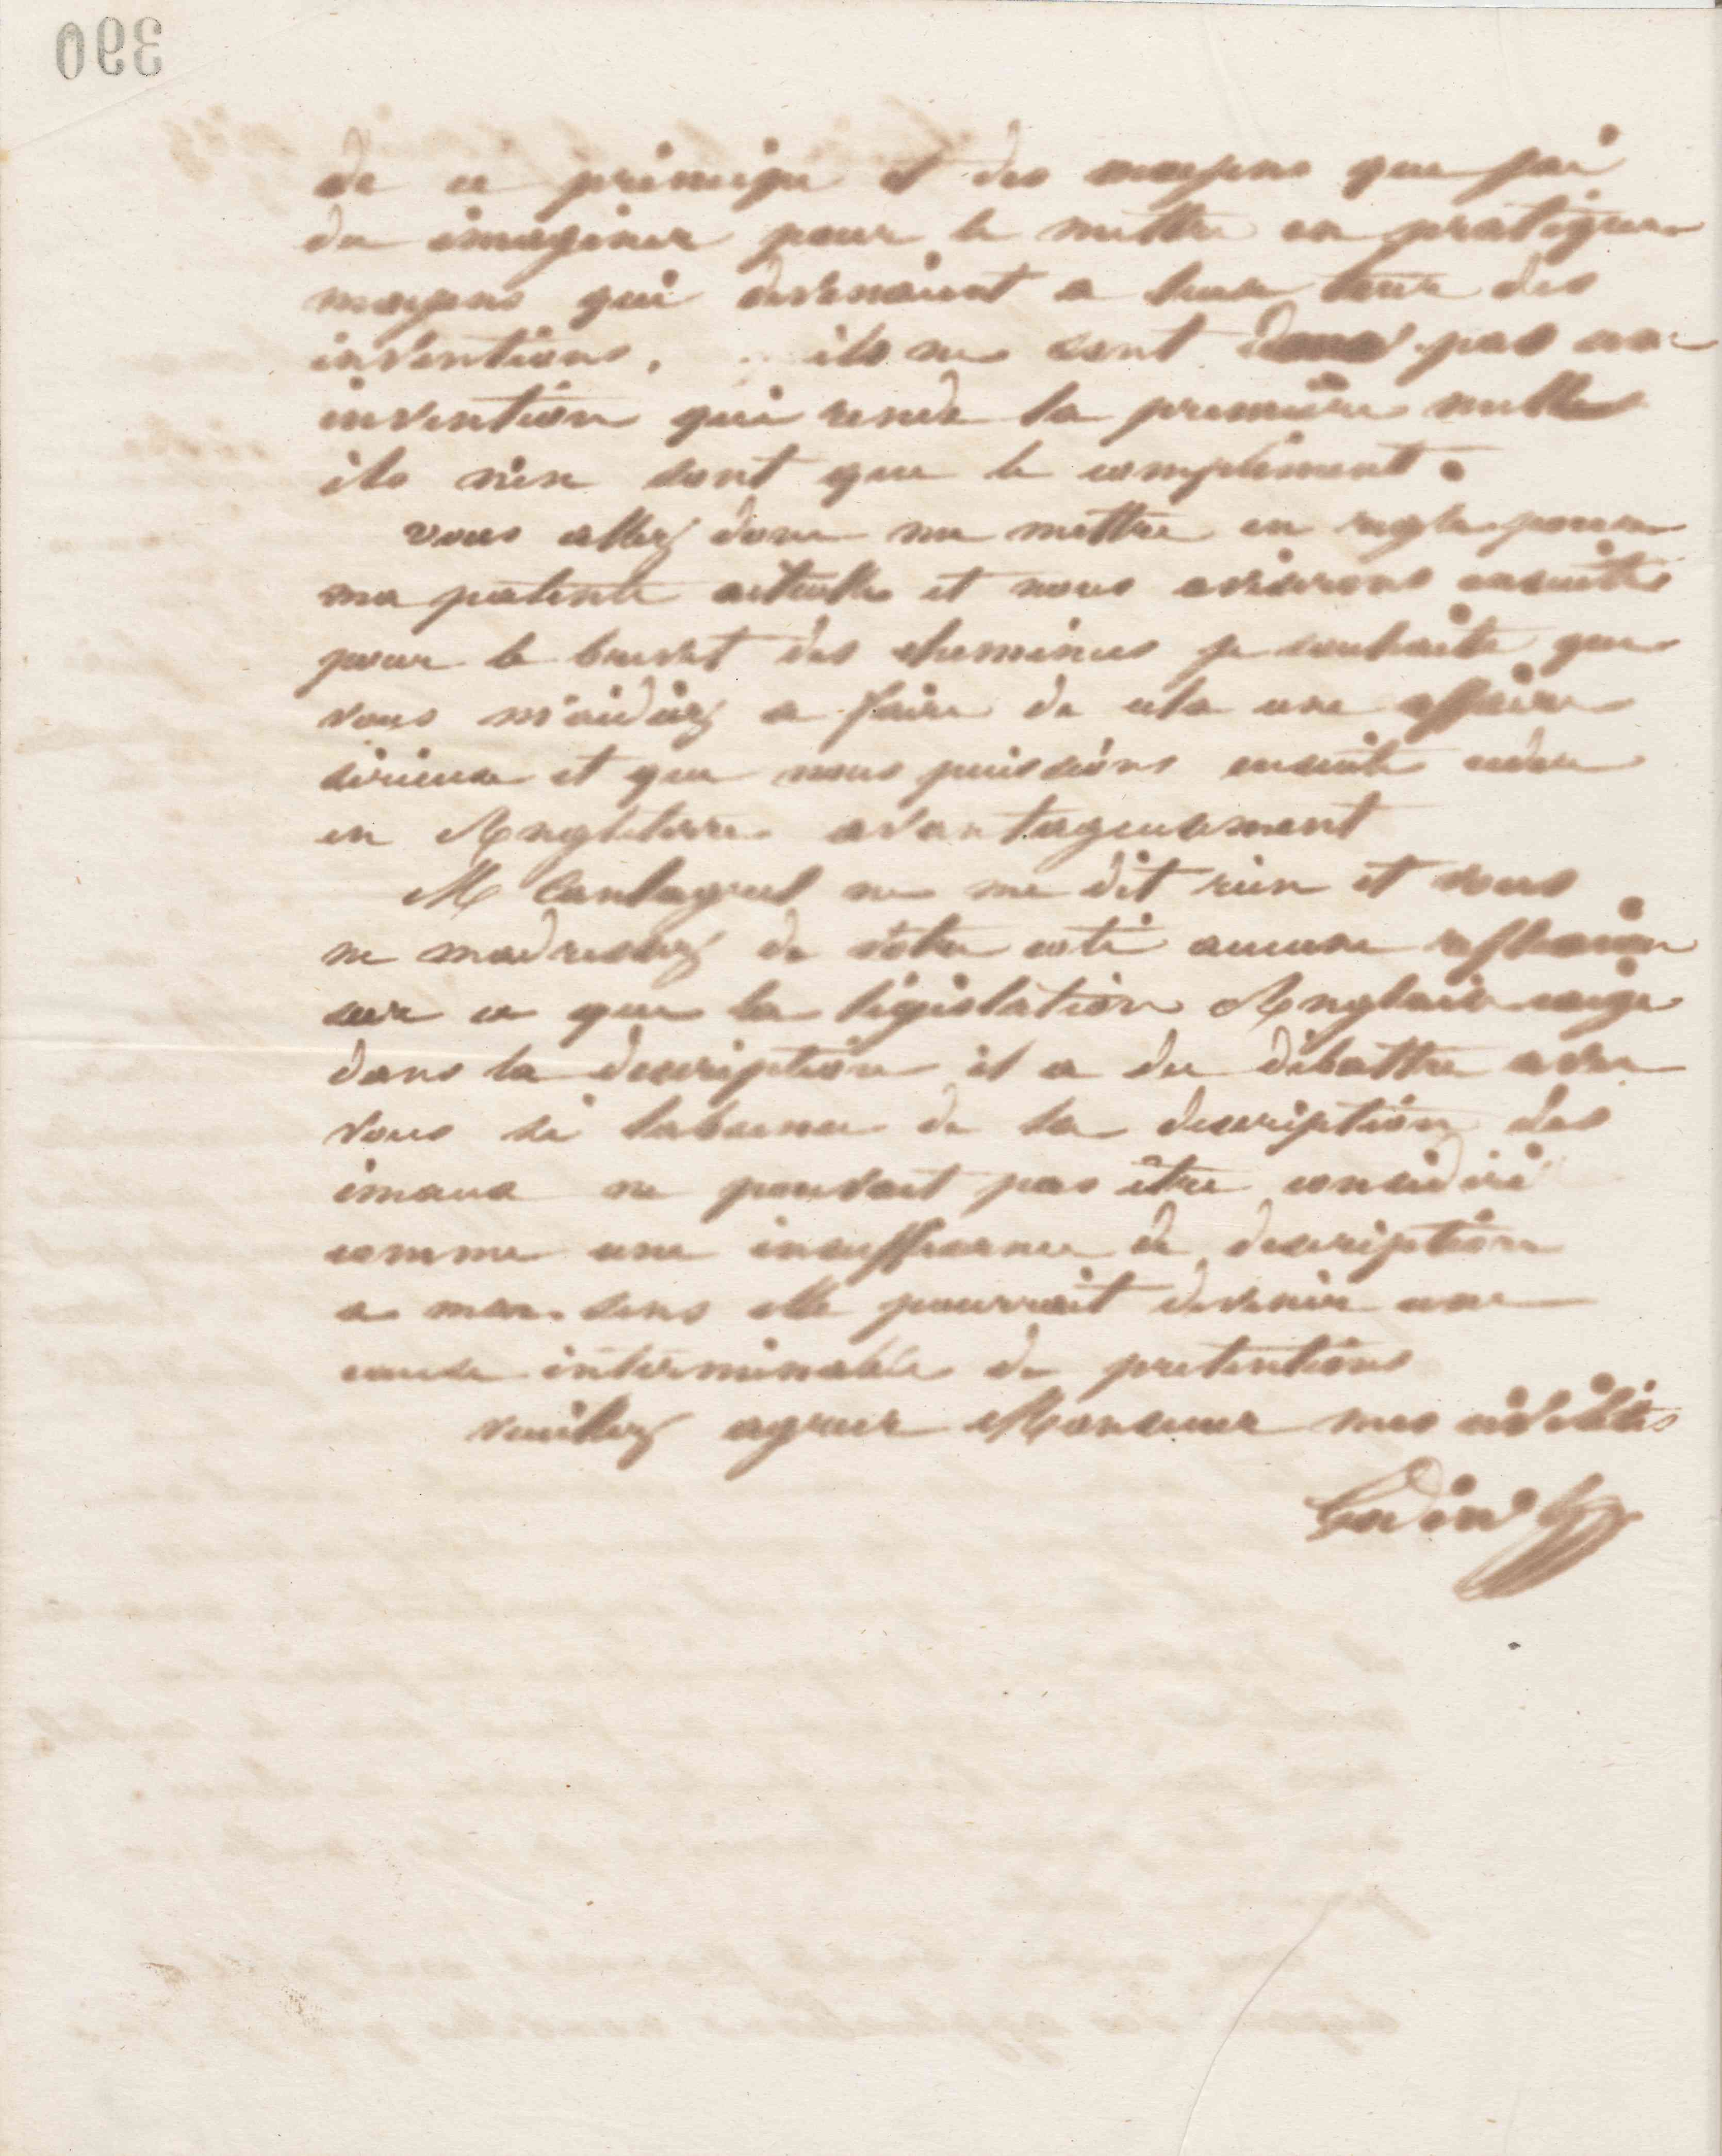 390
de ce principe et des moyens que jai
du imaginer pour le mettre en pratique
moyens qui devenaient a leur tour des
inventions, ils ne sont donc pas une
invention qui rende la premiere nulle
ils n'en sont que le complément.
vous allez donc me mettre en regle pour
ma patente actuelle et nous aviserons ensuite
pour le brevet des cheminées je souhaite que
vous m'aidiez a faire de cela une affaire
serieuse et que nous puissions ensuite céder
en Angleterre avantageusement
M Cantagrel ne me dit rien et vous
ne madressez de votre coté aucune reflexion
sur ce que la législation Anglaise exige
dans la description il a du débattre avec
vous si labsence de la description des
émaux ne pouvait pas être considéré
comme une insuffisance de description
a mon sens elle pourrait devenir une
cause interminable de pretentions
veuillez agreer Monsieur mes civilités
Godin